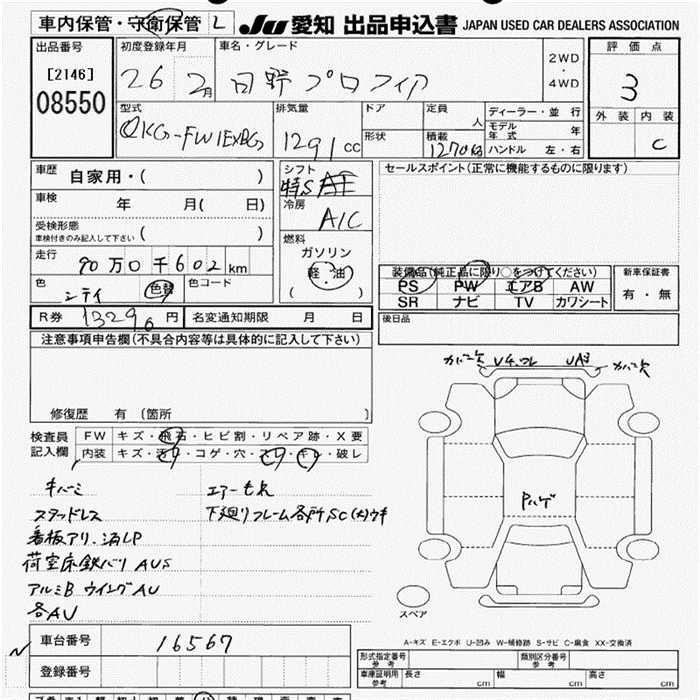 車内保管・守衛保管 L JU 愛知 出品申込書 JAPAN USED CAR DEALERS ASSOCIATION
出品番号 [2146] 08550
初度登録年月 26 2月
車名・グレード 日野プロフィア
2WD・4WD
評価点 3
外装 内装 C
型式 QKG-FW1EXBG
排気量 1291 CC
ドア 定員 人
形状 積載 1270 kg
ディーラー・並行
モデル年式 年
ハンドル 左・右
車歴 自家用・( )
車検 年 月( 日)
受検形態 車検付きのみ記入して下さい ( )
走行 90万0千602km
色 色替 色コード
R券 13296円 名変通知期限 月 日
シフト 特S
冷房 A/C
燃料 ガソリン 軽・油 ( )
セールスポイント(正常に機能するものに限ります)
装備品(純正品に限り○をつけてください)
PS PW エアB AW
SR ナビ TV カワシート
新車保証書 有・無
後日品
注意事項申告欄(不具合内容等は具体的に記入して下さい)
修復歴 有 (箇所 )
検査員記入欄
FW キズ・飛石・ヒビ割・リペア跡・X要
内装 キズ・汚れ・コゲ・穴・スレ・キレ・破レ
エアーモレ
スタッドレス 下廻りフレーム各所SC(大)ウキ
看板アリ.消LP
荷室床鉄バリ AUS
アルミB ウイングAU
各AU
カバー欠 カバー欠
Pハゲ
スペア
A-キズ E-エクボ U-凹み W-補修跡 S-サビ C-腐食 XX-交換済
車台番号 16567
登録番号
形式指定番号 参考 類別区分番号 参考
車庫証明用 参考 長さ cm 幅 cm 高さ cm